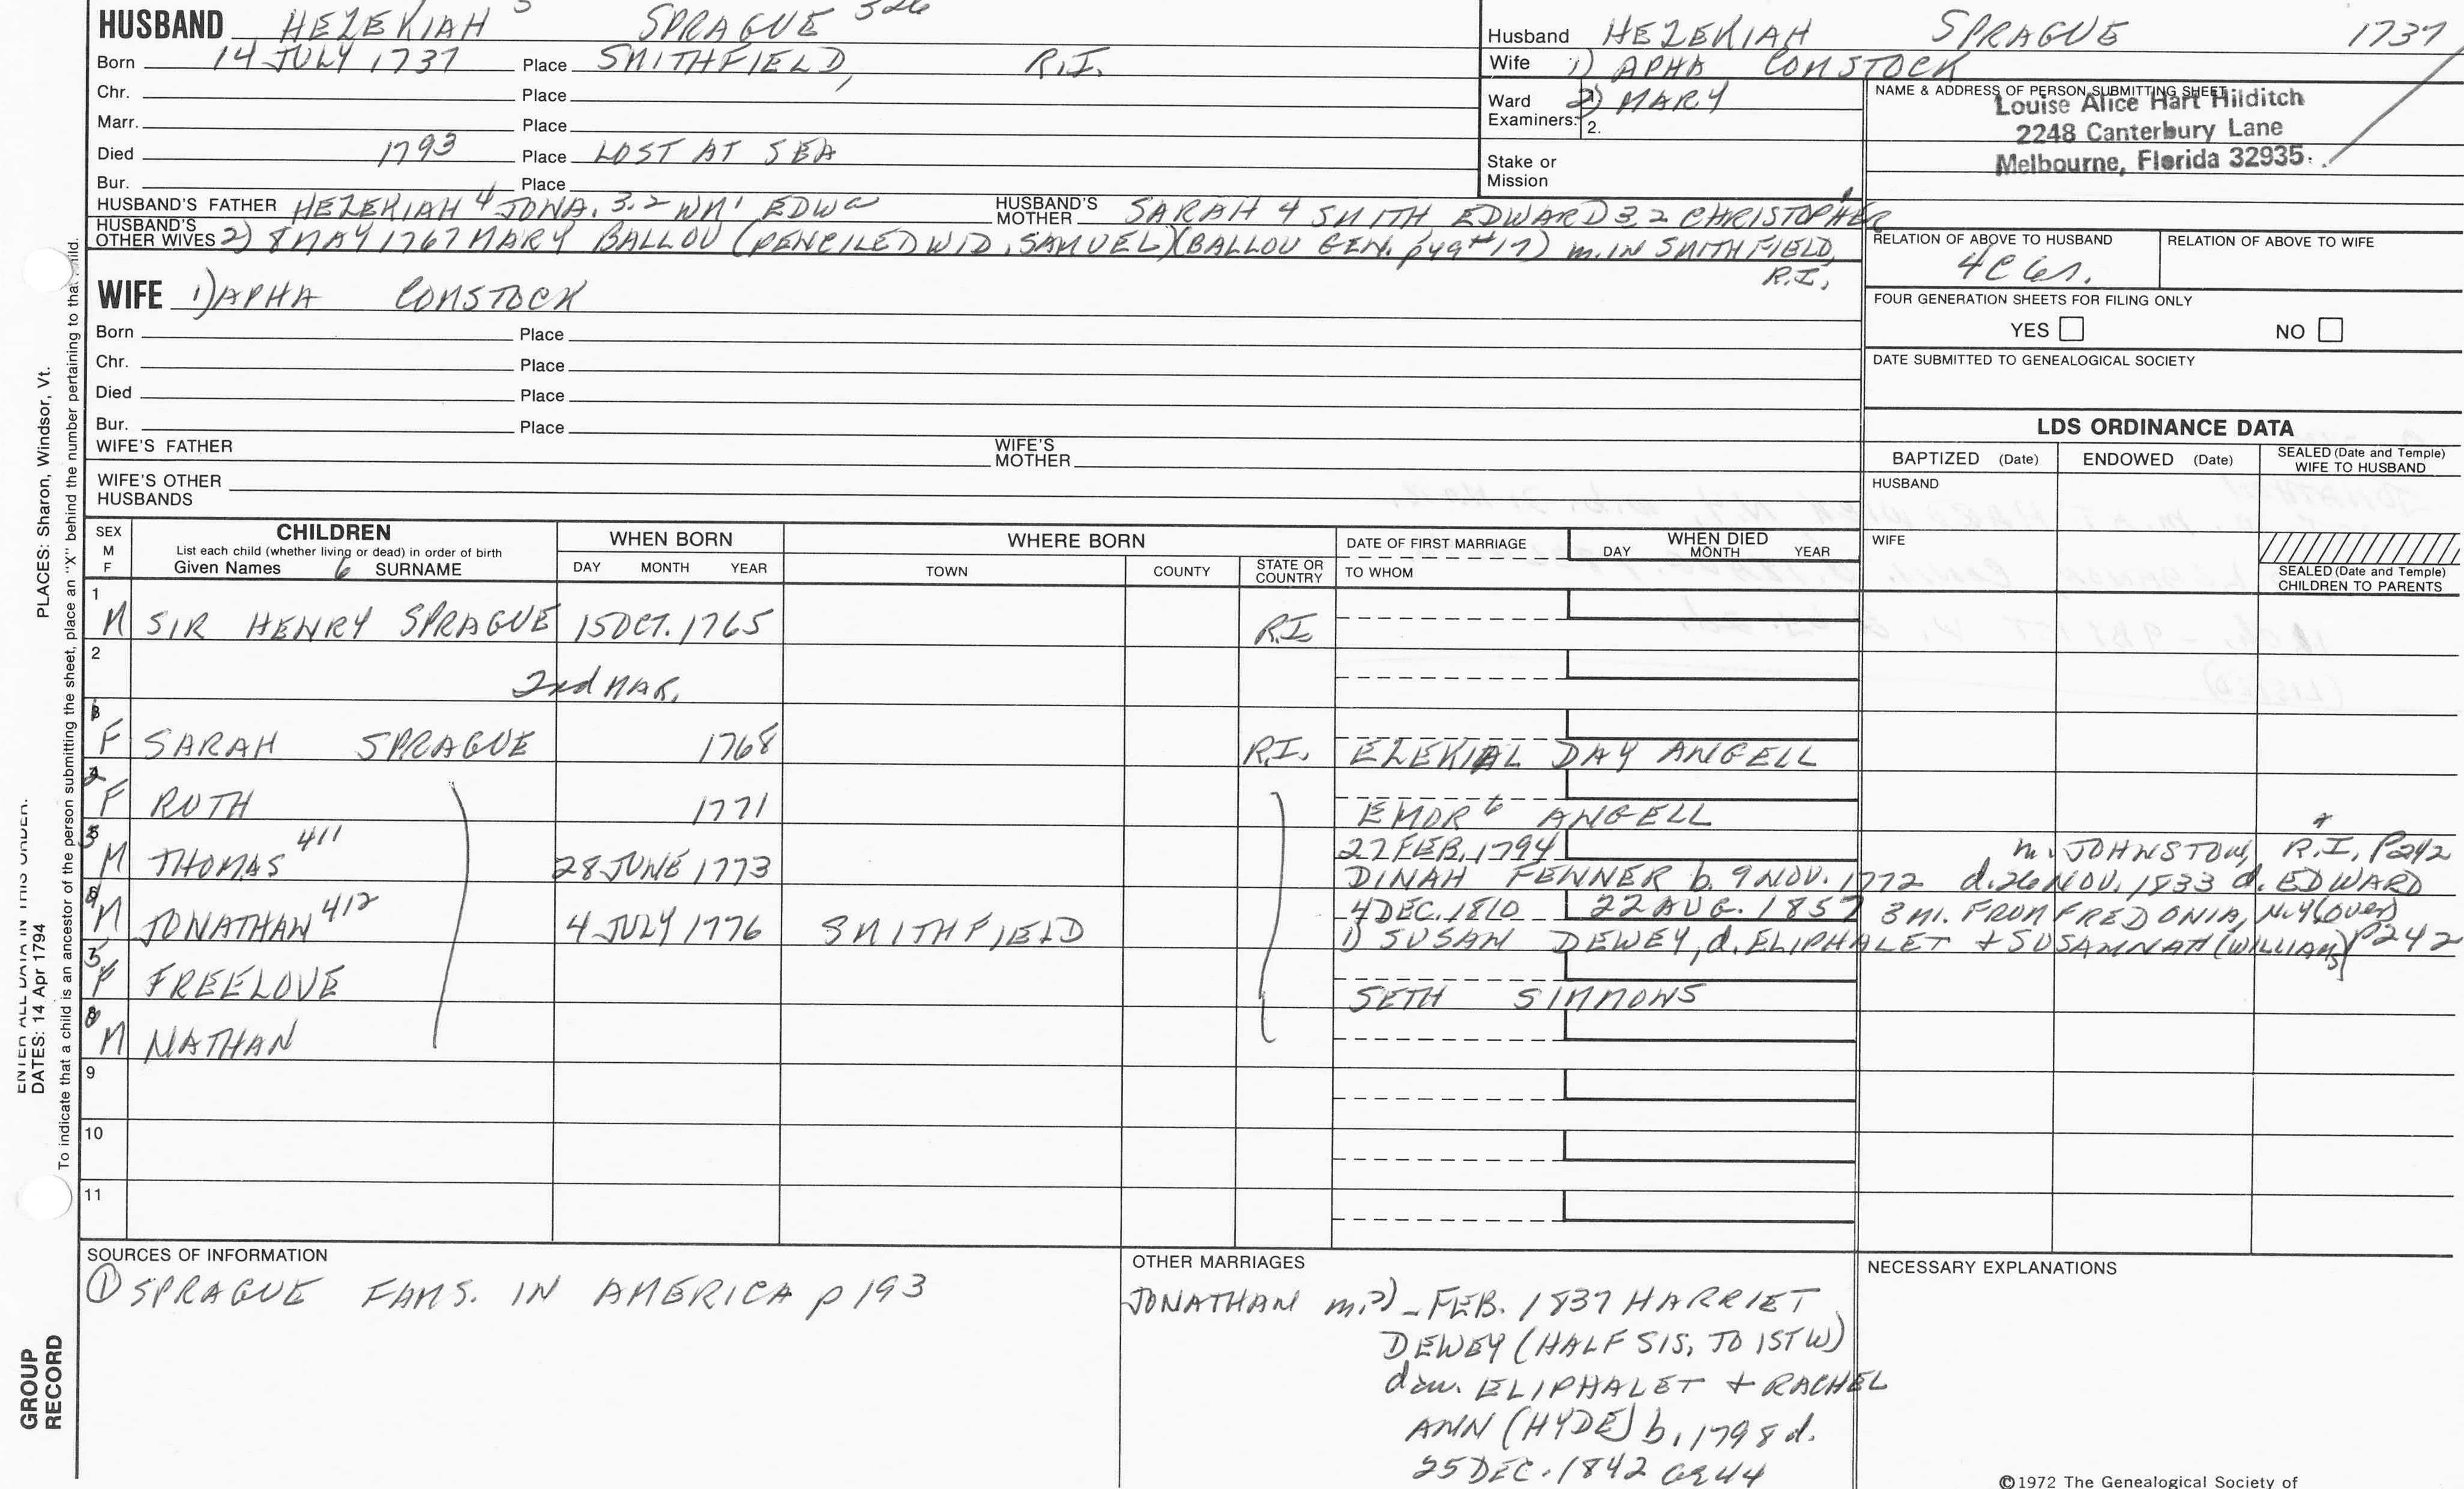 HUSBAND HEZEKIAH 5 SPRAGUE 326
Born 14 JULY 1737 Place SMITHFIELD, R.I.
Chr. Place
Marr. Place
Died 1793 Place LOST AT SEA
Bur. Place
HUSBAND'S FATHER HEZEKIAH 4 JONA. 3.2 WM 1 EDW HUSBAND'S MOTHER SARAH 4 SMITH EDWARD 3 2 CHRISTOPHER 1
HUSBAND'S OTHER WIVES 2) 8 MAY 1767 MARY BALLOU (PENCILED WID. SAMUEL) (BALLOU GEN. p49 #17) m. IN SMITHFIELD,
R.I.
Husband HEZEKIAH SPRAGUE 1737
Wife 1) APHA COMSTOCK
2) MARY
Ward
Examiners: 2.
Stake or
Mission
NAME & ADDRESS OF PERSON SUBMITTING SHEET
Louise Alice Hart Hilditch
2248 Canterbury Lane
Melbourne, Florida 32935.
RELATION OF ABOVE TO HUSBAND RELATION OF ABOVE TO WIFE
4C 6r.
FOUR GENERATION SHEETS FOR FILING ONLY
YES NO
DATE SUBMITTED TO GENEALOGICAL SOCIETY
WIFE 1) APHA COMSTOCK
Born Place
Chr. Place
Died Place
Bur. Place
WIFE'S FATHER WIFE'S MOTHER
WIFE'S OTHER
HUSBANDS
LDS ORDINANCE DATA
BAPTIZED (Date) ENDOWED (Date) SEALED (Date and Temple) WIFE TO HUSBAND
HUSBAND
WIFE
SEALED (Date and Temple)
CHILDREN TO PARENTS
SEX M F
CHILDREN
List each child (whether living or dead) in order of birth
Given Names 6 SURNAME
WHEN BORN
DAY MONTH YEAR
WHERE BORN
TOWN COUNTY STATE OR COUNTRY
DATE OF FIRST MARRIAGE
TO WHOM
WHEN DIED
DAY MONTH YEAR
1
M SIR HENRY SPRAGUE 15 OCT. 1765 R.I.
2
2nd MAR.
1
F SARAH SPRAGUE 1768 R.I. EZEKIAL DAY ANGELL
2
F RUTH 1771 EMOR 6 ANGELL
3 27 FEB. 1794 m. JOHNSTON, R.I. P242
M THOMAS 411 28 JUNE 1773 DINAH FENNER b. 9 NOV. 1772 d. 26 NOV. 1833 d. EDWARD
4 DEC. 1810 22 AUG. 1857 3 MI. FROM FREDONIA, N.Y. (OVER)
M JONATHAN 412 4 JULY 1776 SMITHFIELD 1) SUSAN DEWEY, d. ELIPHALET + SUSAMNAH (WILLIAMS) P242
5
F FREELOVE SETH SIMMONS
M NATHAN
9
10
11
SOURCES OF INFORMATION
① SPRAGUE FAMS. IN AMERICA p 193
OTHER MARRIAGES
JONATHAN m. 2) - FEB. 1837 HARRIET
DEWEY (HALF SIS. TO 1ST W)
dau. ELIPHALET + RACHEL
ANN (HYDE) b. 1798 d.
25 DEC. 1842 ae 44
NECESSARY EXPLANATIONS
©1972 The Genealogical Society of
PLACES: Sharon, Windsor, Vt.
ENTER ALL DATA IN THIS ORDER:
DATES: 14 Apr 1794
To indicate that a child is an ancestor of the person submitting the sheet, place an "X" behind the number pertaining to that child.
GROUP
RECORD